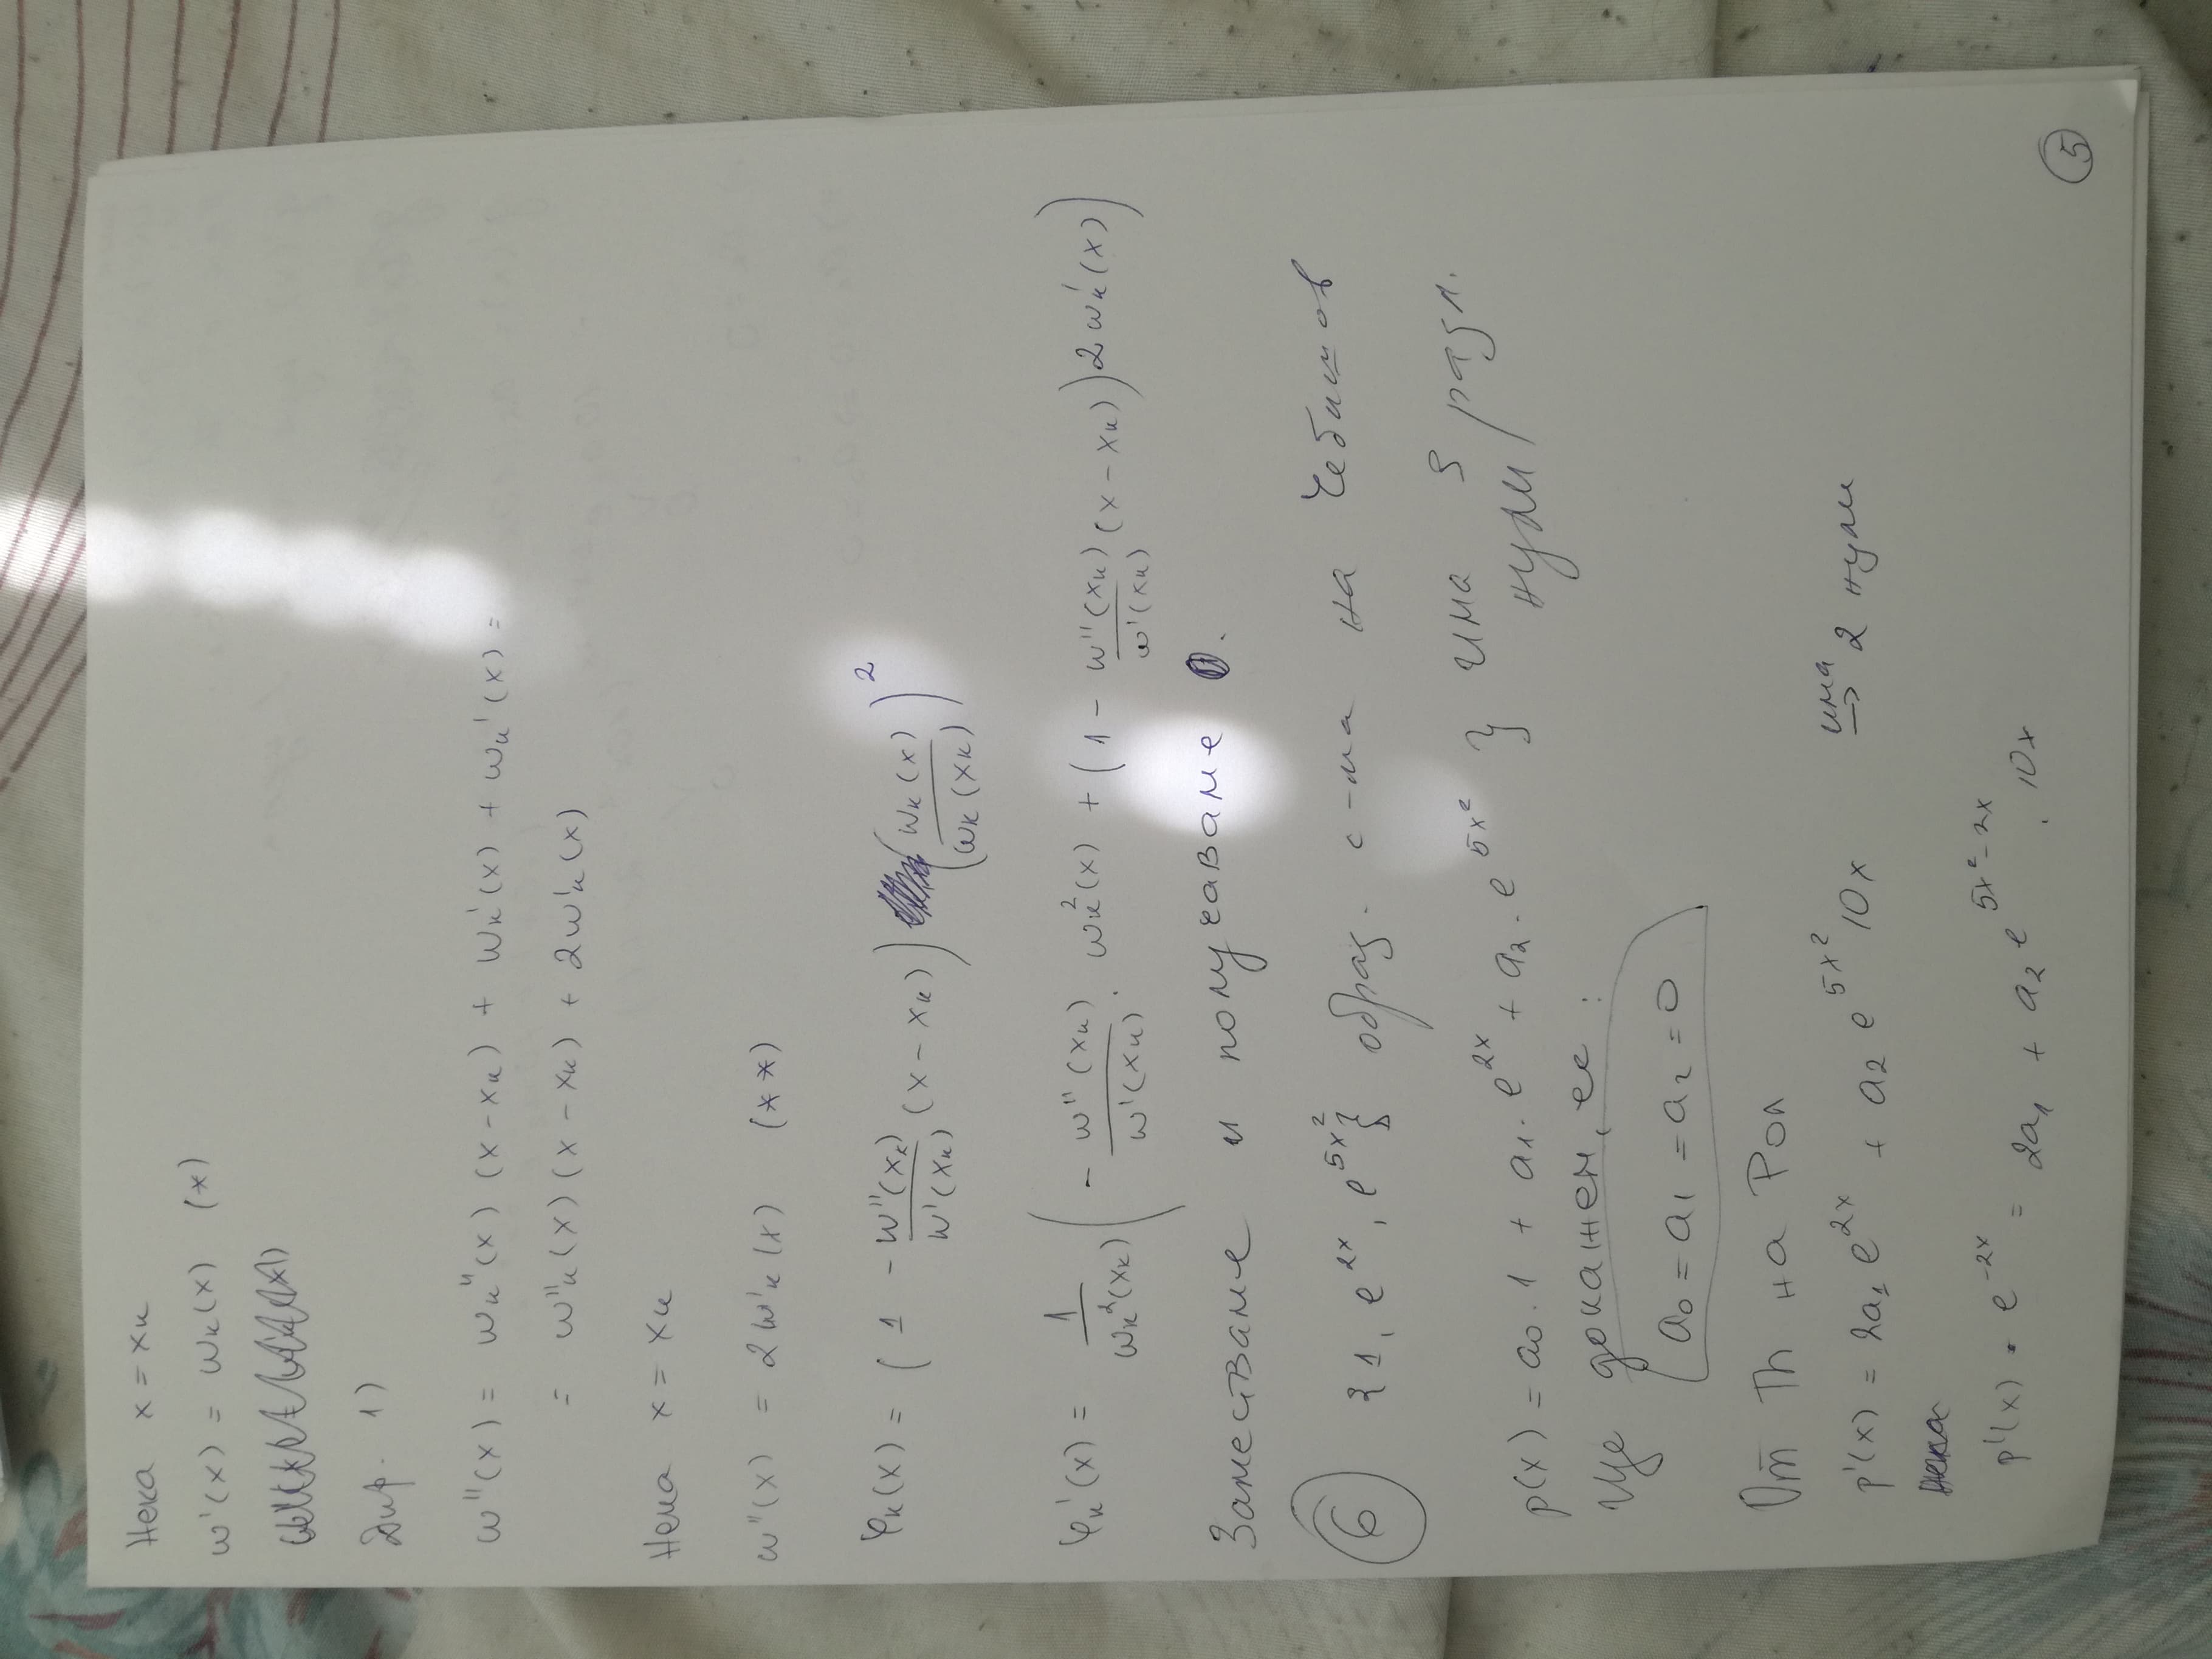 Нека x = xк
ω'(x) = ωк(x) (*)
Диф. 1)
ω''(x) = ωк''(x) (x - xк) + ωк'(x) + ωк'(x) =
= ω''к(x) (x - xк) + 2ω'к(x)
Нека x = xк
ω''(x) = 2ω'к(x) (**)
φк(x) = ( 1 - ω''(xк)/ω'(xк) (x - xк) ) ( ωк(x)/ωк(xк) )²
φк'(x) = 1/ωк²(xк) ( - ω''(xк)/ω'(xк) . ωк²(x) + ( 1 - ω''(xк)/ω'(xк) (x - xк) ) 2ωк'(x) )
Заместваме и получаваме 0.
6 {1, e^2x, e^5x²} образ. с-ма на Чебишов
p(x) = a₀ . 1 + a₁ . e^2x + a₂ . e^5x² } има 3 разл. нули
Ще докажем, че :
a₀ = a₁ = a₂ = 0
От Th на Рол
p'(x) = 2a₁ e^2x + a₂ e^5x² 10x има → 2 нули
Нека
p'(x) . e^-2x = 2a₁ + a₂ e^5x²-2x . 10x
5